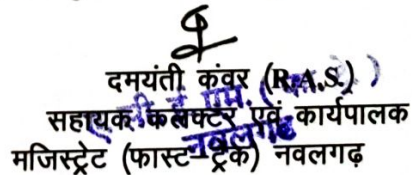 दमयंती कंवर (R.A.S.)
सहायक कलक्टर एवं कार्यपालक
मजिस्ट्रेट (फास्ट-ट्रेक) नवलगढ़
नवलगढ़